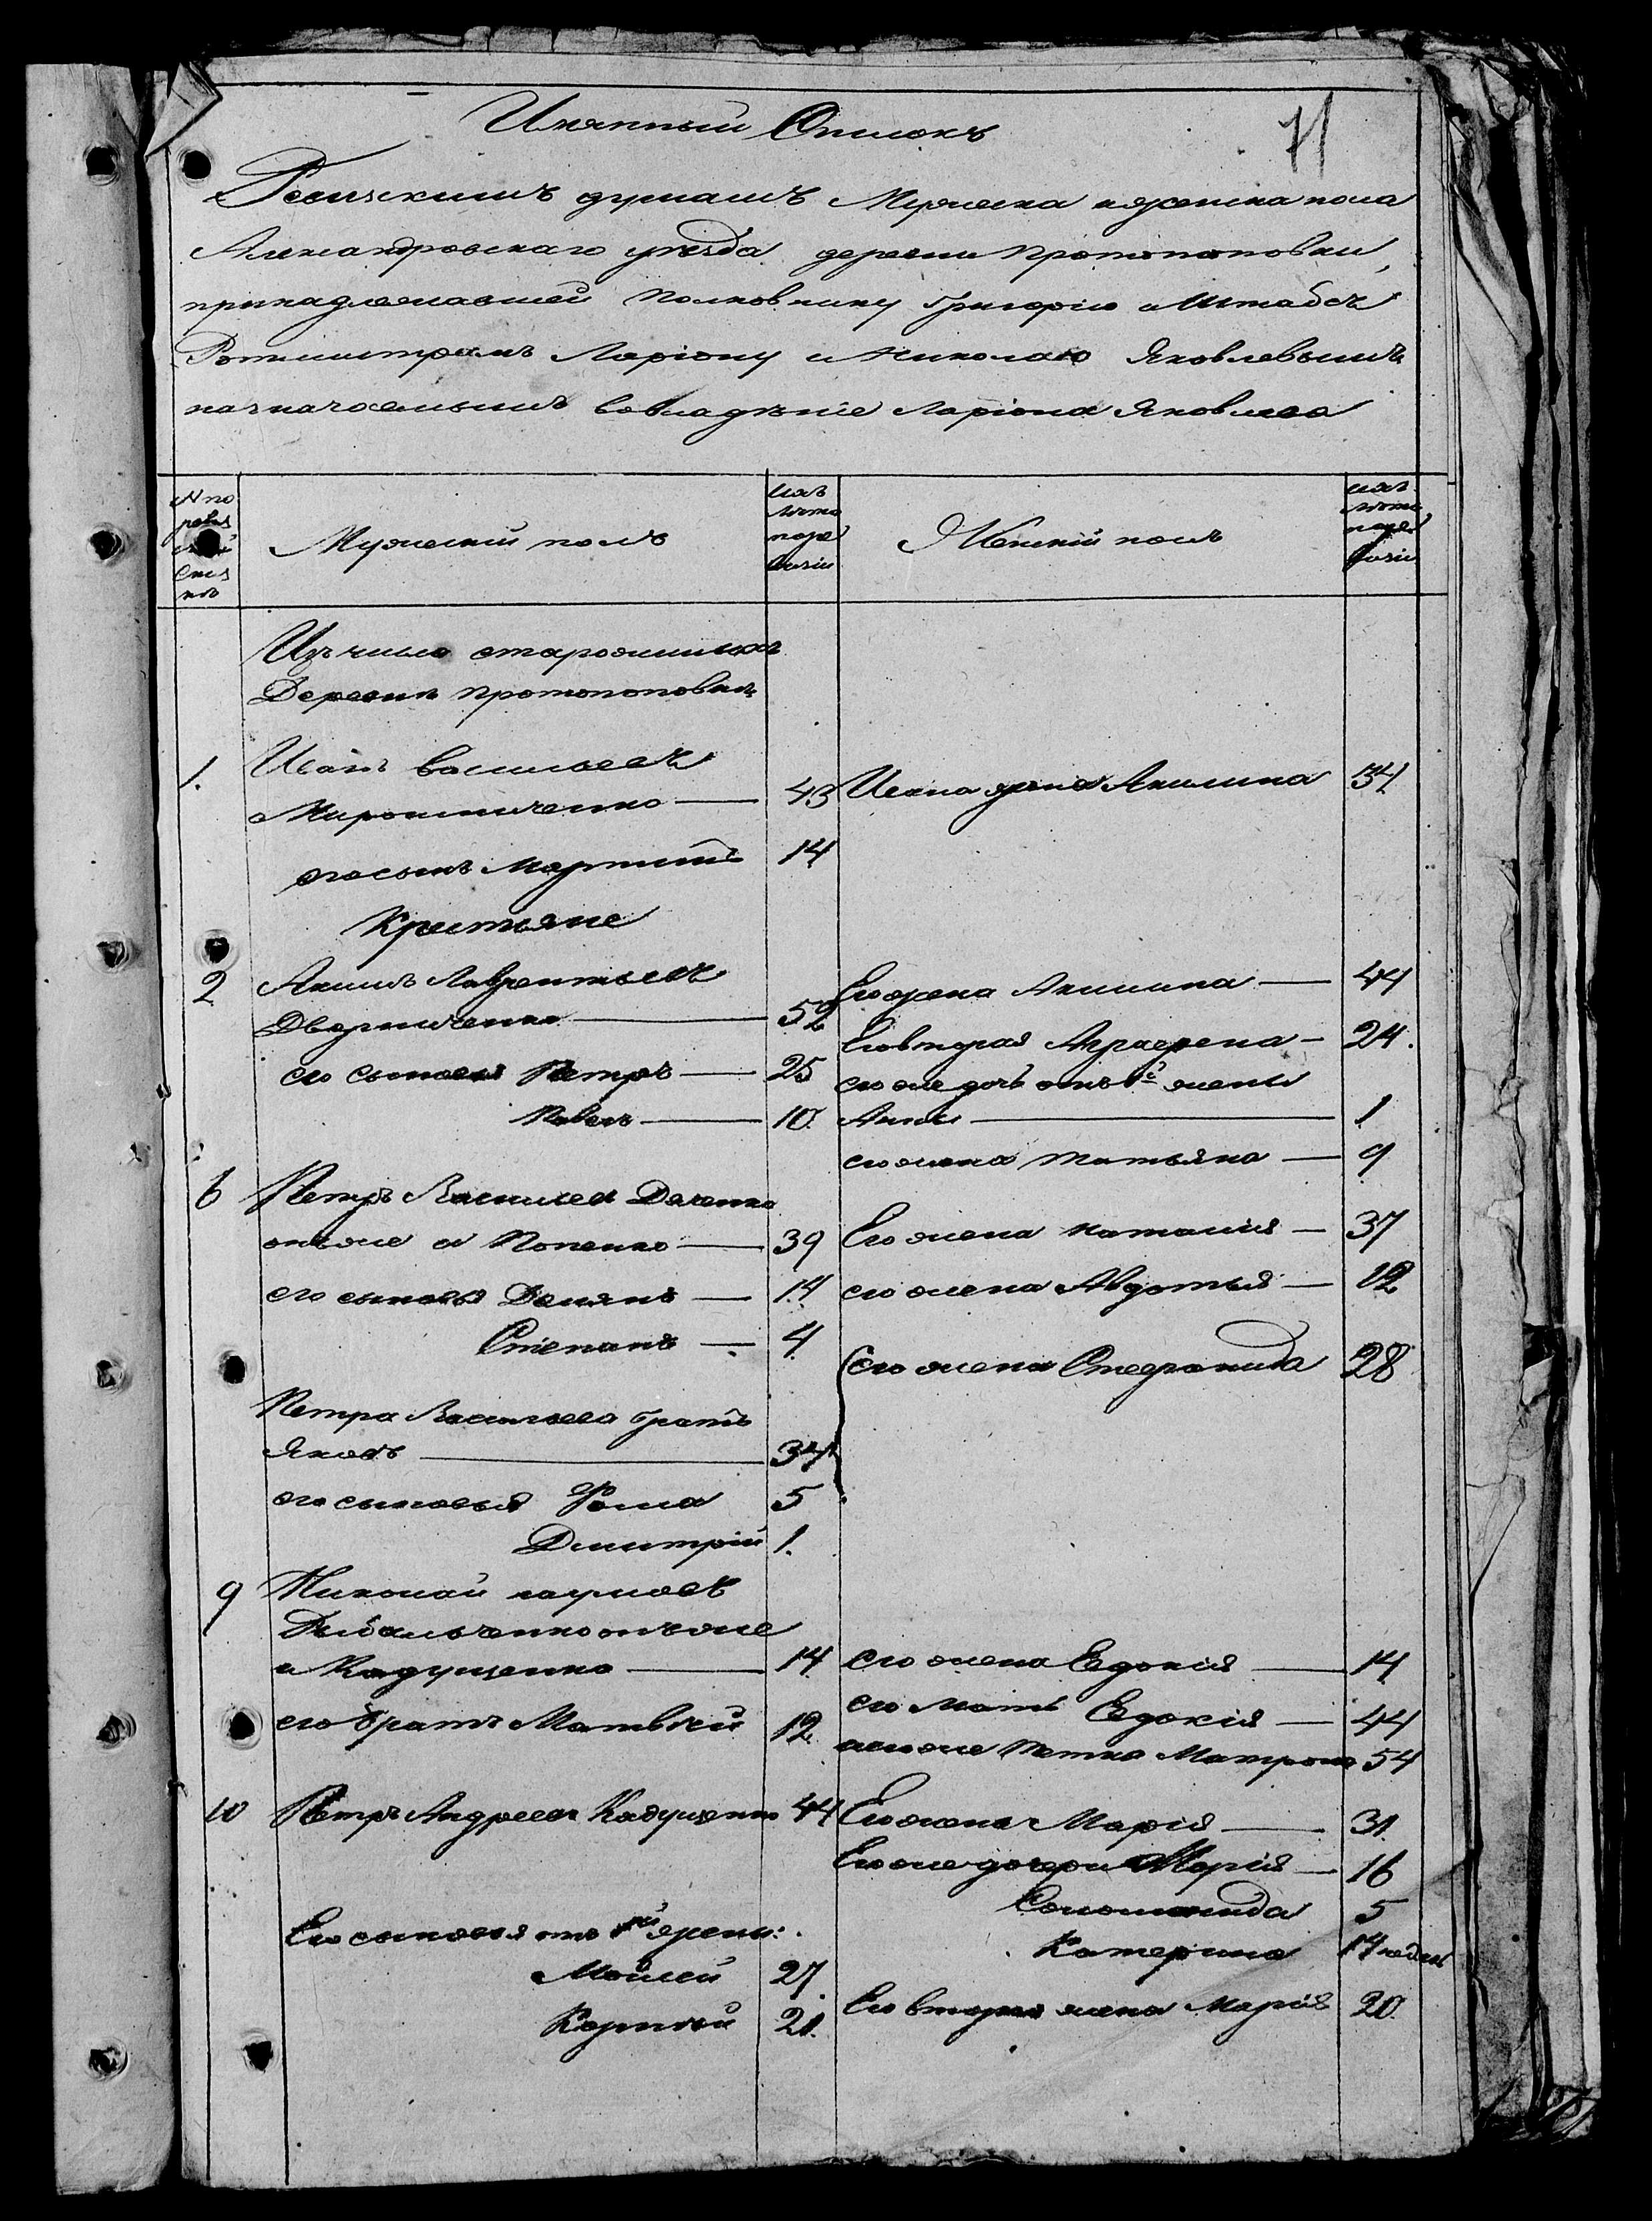 Имянный Списокъ
71
Ревизскимъ душамъ Мужеска и женска пола
Александровскаго уѣзда деревни Протопоповки,
принадлежавшей Полковнику Григорію и Штабсъ
Ротмистрамъ Ларіону и Николаю Яковлевымъ
назначаемымъ вовладѣніе Ларіона Яковлева
№ по
ревиз
ской
Сказ
кѣ
Мужескій полъ
имъ
лѣта
поре
визіи
Женскій полъ
имъ
лѣта
поре
визіи
Изъ числа старожилыхъ
Деревни Протопоповки
1. Иванъ Васильевъ
Мирошниченко — 43 Ивана жена Акилина 34
его сынъ Мартинъ 14
Крестьяне
2 Акимъ Лаврентьевъ
Дворниченко — 52 Его жена Акилина — 44
Его вторая Аграфена — 24.
его сыновья Петръ — 25 его же дочь отъ 1й жены
Павелъ — 10. Анна — 1
его жена Татьяна — 9
6 Петръ Васильевъ Даченко
онъ же и Попенко — 39 Его жена Наталия — 37
его сыновья Демянъ — 14 его жена Авдотья — 12
Степанъ — 4
его жена Степанида 28
Петра Васильева братъ
Яковъ — 34
его сыновья Фома 5
Дмитрій 1.
9 Николай Наумовъ
Дыбальченко онъ же
и Кадущенко — 14 его жена Евдокия — 14
его братъ Матвѣй 12 его мать Евдокія — 44
его же тетка Матрона 54
10 Петръ Андреевъ Кадущенко 44 Его жена Марія — 31
Его же дочери Марія — 16
Соломанида 5
Его сыновья отъ 1й жены:
Катерина 14 недель
Мойсей 27.
Его вторая жена Марія 20.
Корнѣй 21.